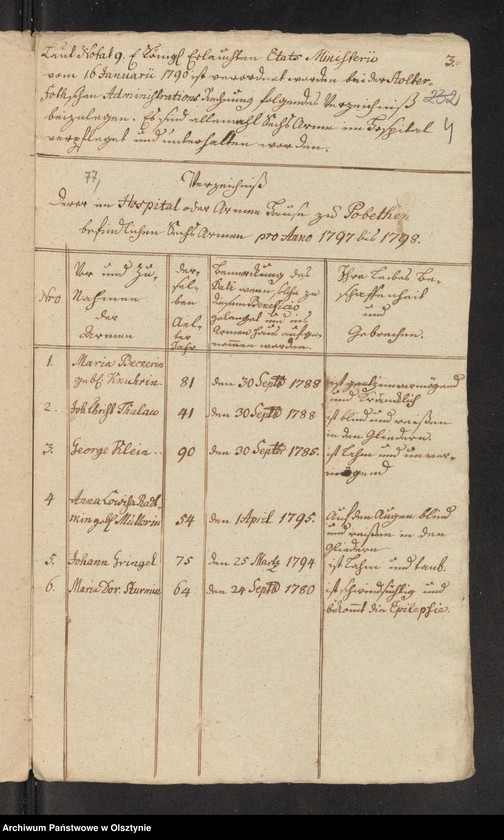 Laut Notat 9. E. Königl. Erlauchten Etats Ministerii
3.
vom 16 Januarii 1790 ist verordnet worden bei der
Administrations Rechnung folgendes Verzeichniß
232
beizulegen. Es sind allemahl Sechs Arme im Hospital
4
verpfleget und unterhalten worden.
77,
Verzeichniß
Derer im Hospital oder Armen Hause zu Pobethen
befindlichen Sechs Armen pro Anno 1797 bis 1798.
Nro
Vor und Zu-
Nahmen
der
Armen
der-
sel-
ben
Ael-
ter
Jahr
Bemerkung des
Dati wenn solche zu
diesem Beneficio
gelanget und ins
Armen Haus aufge-
nommen worden.
Ihre Leibes Be-
schaffenheit
und
Gebrechen.
1. Maria
gebh. 81 den 30 Septb 1788 ist gantz unvermögend
und Kränklich
2. Joh Christ Thulau 41 den 30 Septb 1788 ist blind und reißen
in den Gliedern.
3. George Klein.. 90 den 30 Septbr 1785. ist Lahm und unver-
mögend
4 Anna Lowisa
Müllerin 54 den 1 April 1795. Auf den Augen blind
und reißen in den
Gliedern
5. Johann Gringel 75 den 25 Martz 1794 ist Lahm und taub.
6. Maria Dor. Sturmin 64 den 24 Septb 1780 ist schwindsüchtig und
bekommt die Epilepsie.
Archiwum Państwowe w Olsztynie